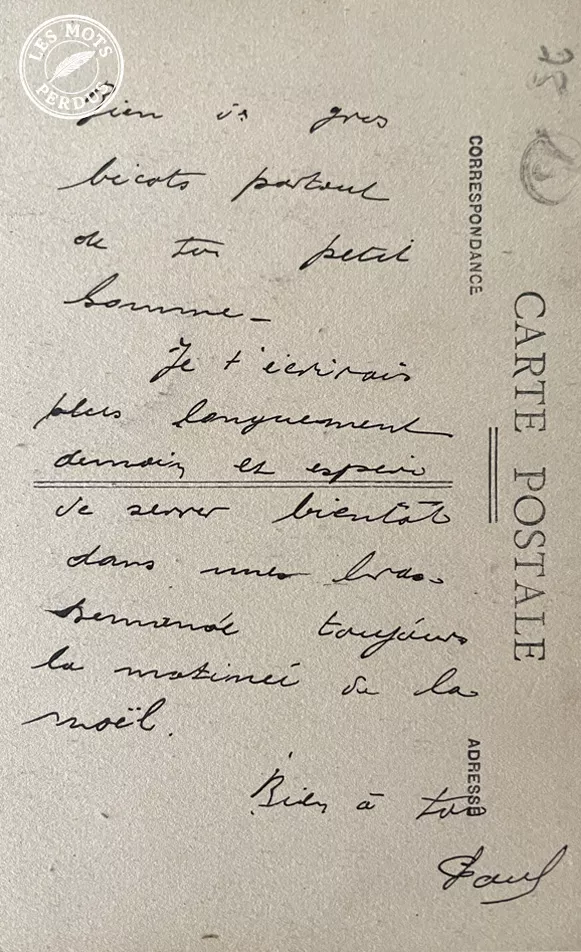 LES MOTS PERDUS
Bien de gros
bicots partout
de ton petit
homme_
Je t'écrirais
plus longuement
demain et espère
te serrer bientôt
dans mes bras.
Demande toujours
la matinée de la
noël.
Bien à toi
Paul
CORRESPONDANCE
CARTE POSTALE
ADRESSE